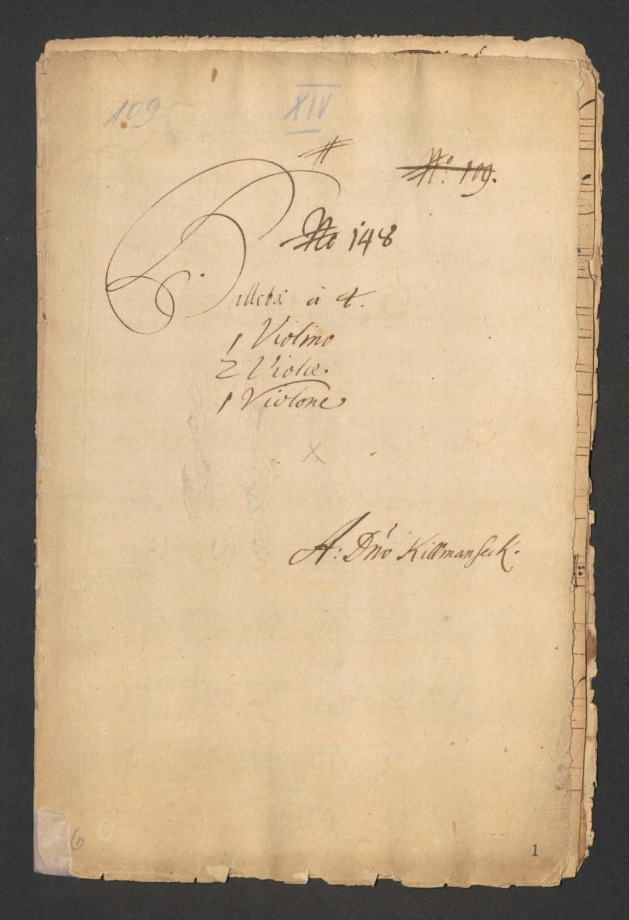 109
XIV
#
No: 109.
No 148
Balletti à 4.
1 Violino
2 Violæ.
1 Violone
X
A: Dño Killmanseck.
6
1